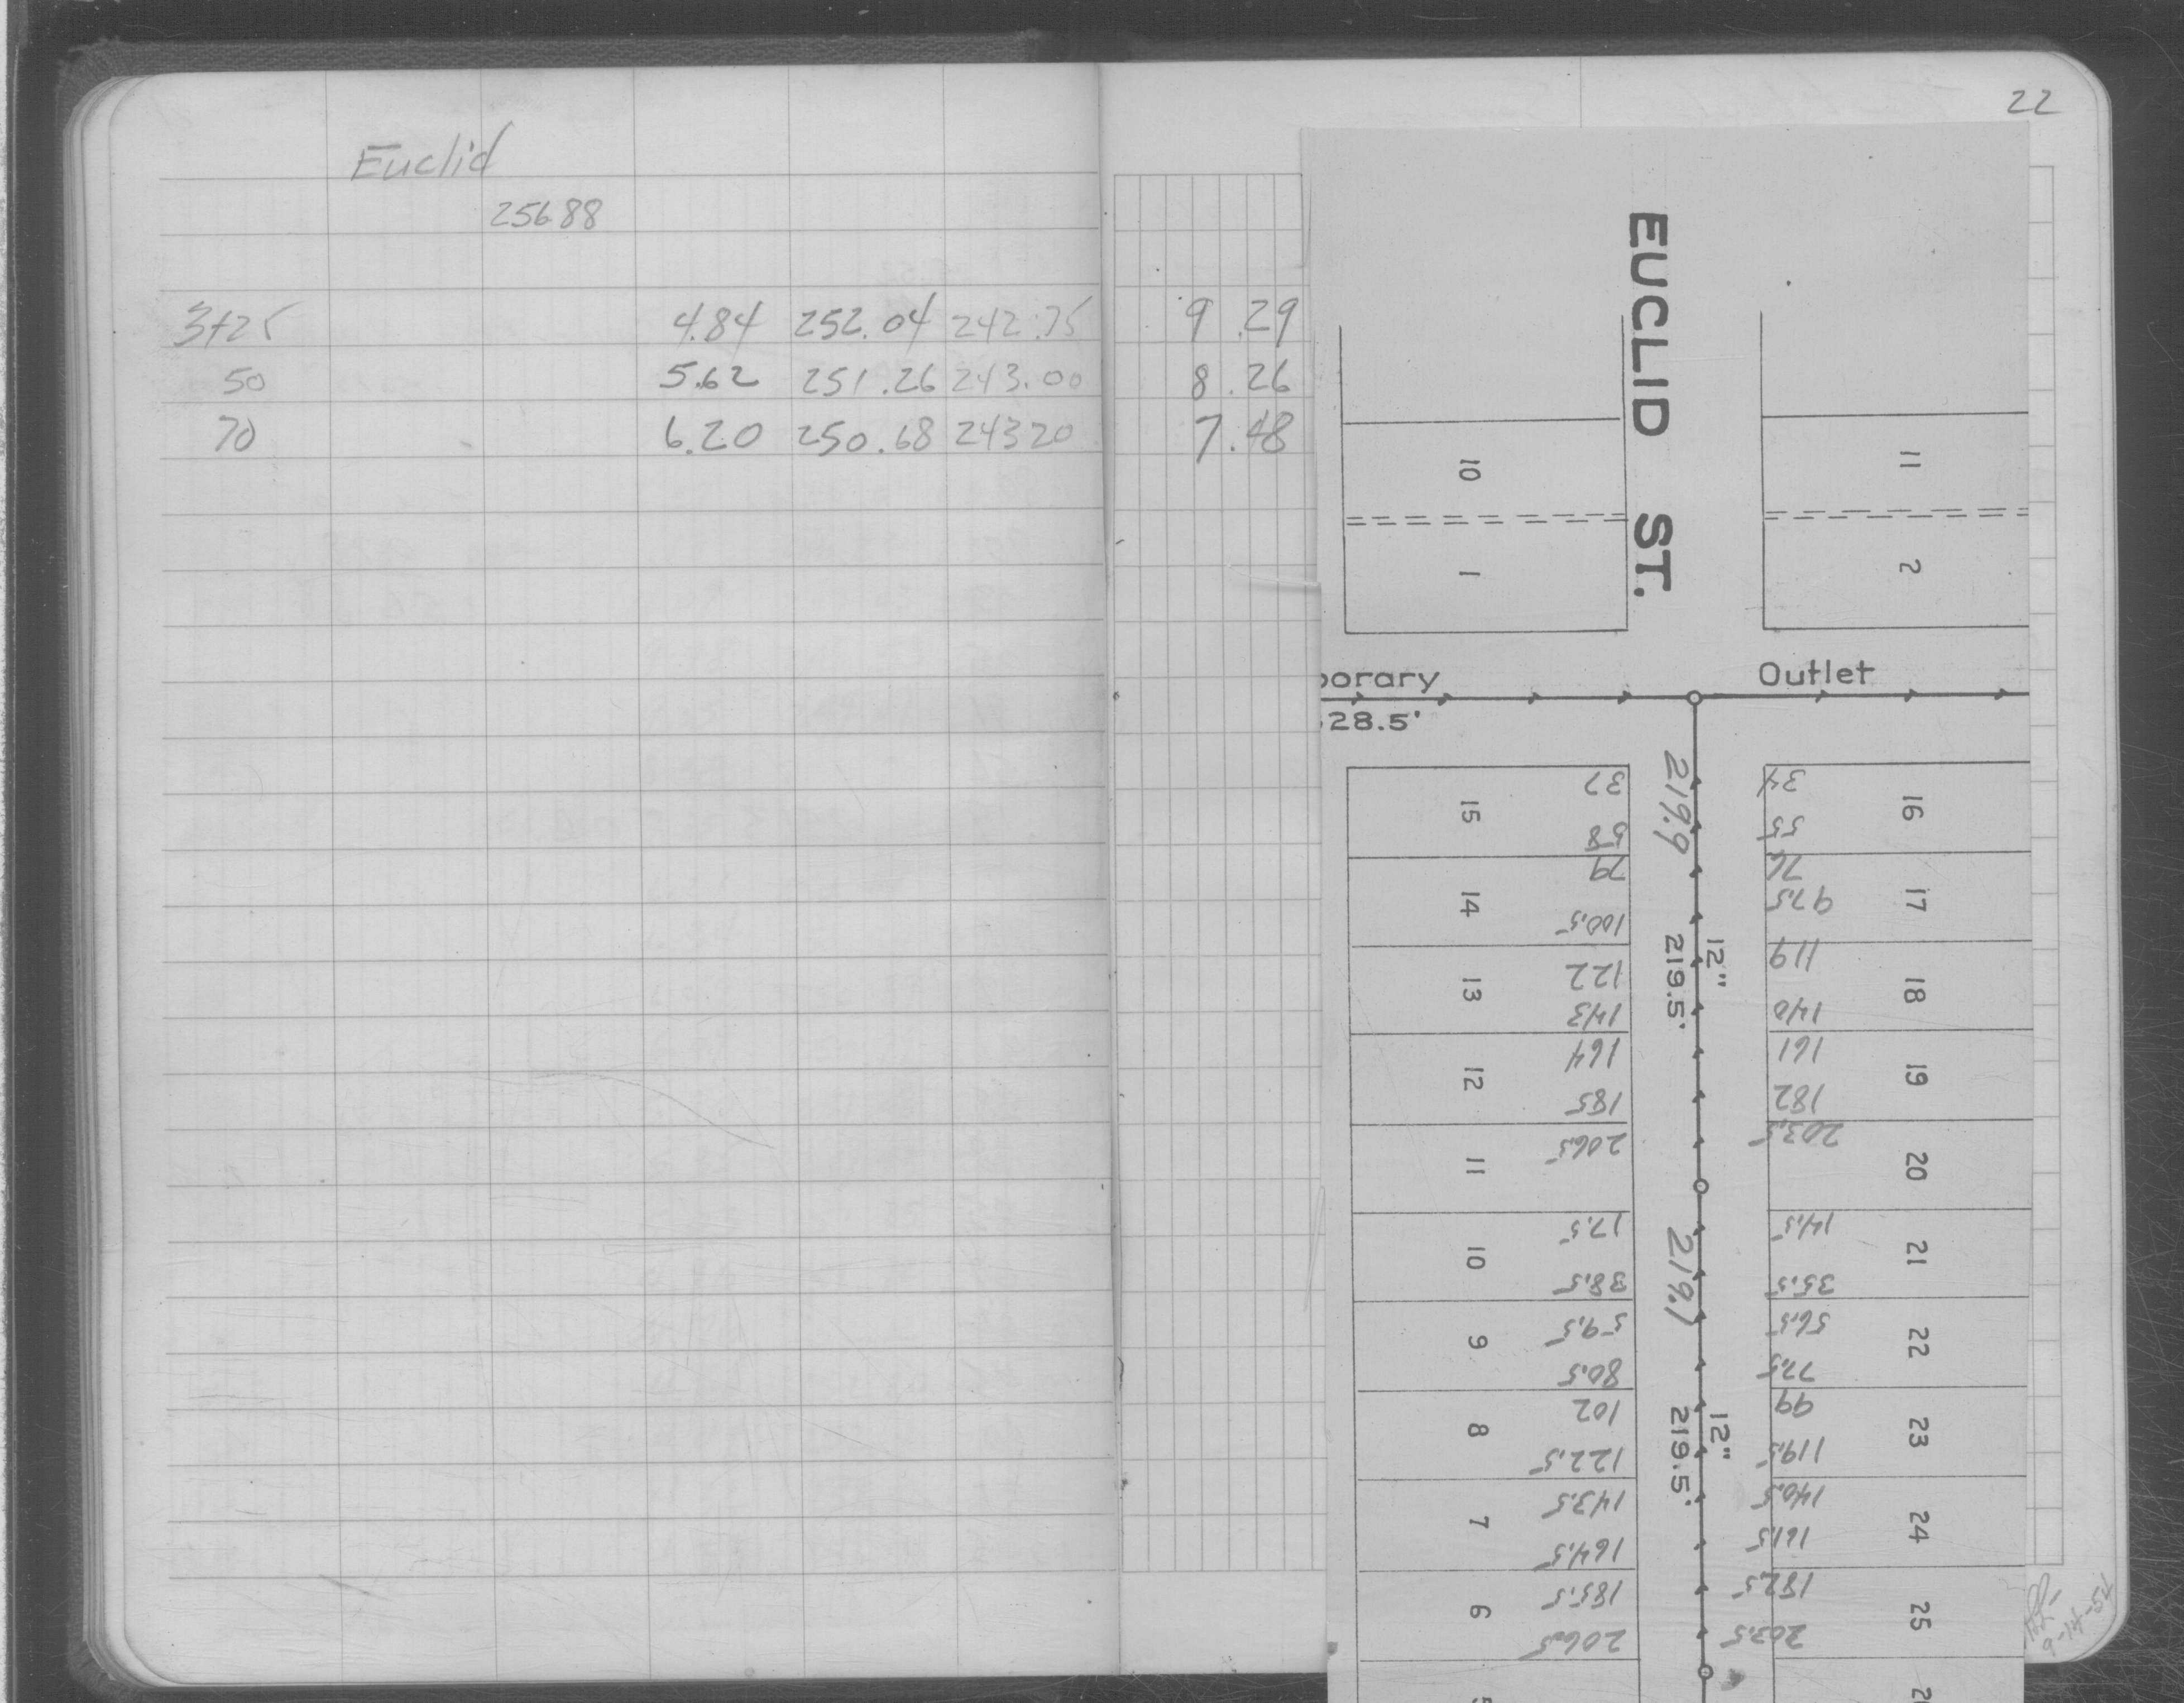 22
Euclid
256.88
3+25 4.84 252.04 242.75 9.29
50 5.62 251.26 243.00 8.26
70 6.20 250.68 243.20 7.48
EUCLID ST.
10 11
1 2
porary Outlet
28.5'
15 37 34 16
58 219.9 55
14 79 76 17
100.5 97.5
12"
219.5'
13 122 119 18
143 140
12 164 161 19
185 182
11 206.5 203.5 20
10 17.5 14.5 21
38.5 219.1 35.5
9 59.5 56.5 22
80.5 77.5
8 102 99 23
122.5 119.5
12"
219.5'
7 143.5 140.5 24
164.5 161.5
6 185.5 182.5 25
206.5 203.5
9-14-54